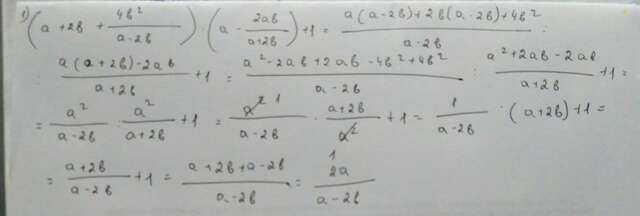 1) (a + 2b + 4b²/(a-2b)) : (a - 2ab/(a+2b)) + 1 = (a(a-2b) + 2b(a-2b) + 4b²)/(a-2b) :
: (a(a+2b) - 2ab)/(a+2b) + 1 = (a² - 2ab + 2ab - 4b² + 4b²)/(a-2b) : (a² + 2ab - 2ab)/(a+2b) + 1 =
= a²/(a-2b) : a²/(a+2b) + 1 = a² 1/(a-2b) · (a+2b)/a² + 1 = 1/(a-2b) · (a+2b) + 1 =
= (a+2b)/(a-2b) + 1 = (a+2b+a-2b)/(a-2b) = 1 2a/(a-2b)